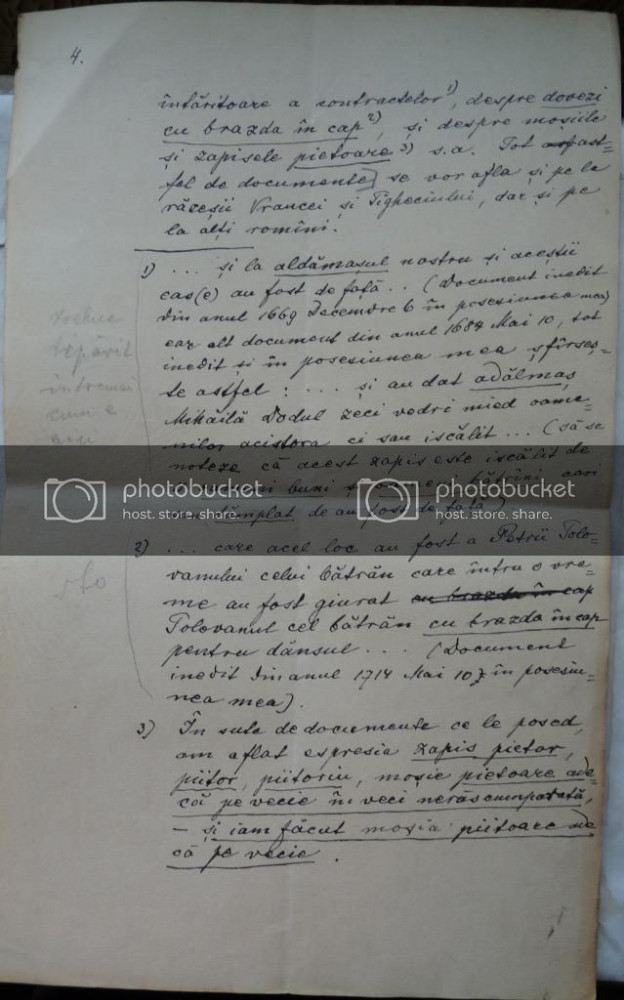 4.
întăritoare a contractelor 1), despre dovezi
cu brazda în cap 2), și despre moșiile
și zapisele pietoare 3) s.a. Tot ast=
fel de documente se vor afla și pe la
răzeșii Vrancei și Tigheciului, dar și pe
la alți romîni.
1) ... și la aldămașul nostru și aceștii
cas(e) au fost de față .. (Document inedit
din anul 1669 Decemvre 6 în posesiunea mea)
ear alt document din anul 1684 Mai 10, tot
inedit si în posesiunea mea sfîrseș=
te astfel : ... și au dat adălmaș
Mihăilă Dodul zeci vedri mied oame=
nilor acistora ci sau iscălit ... (să se
noteze că acest zapis este iscălit de
oameni buni și oameni bătrîni cari
tâmplat de au fost de față)
2) ... care acel loc au fost a Petrii Tolo=
vanului celui bătrân care întru o vre=
me au fost giurat cu brazda în cap
Tolovanul cel bătrân cu brazda în cap
pentru dânsul ... (Document
inedit din anul 1714 Mai 10 în posesiu=
nea mea).
3) În sute de documente ce le posed,
am aflat espresia zapis pietor,
piitor, piitoriu, moșie pietoare ade=
că pe vecie în veci nerăscumpărată,
– și iam făcut moșia piitoare ade
că pe vecie.
trebue
tipărit
întocmai
cum e
aici
photobucket
host. store. share.
photobucket
host. store. share.